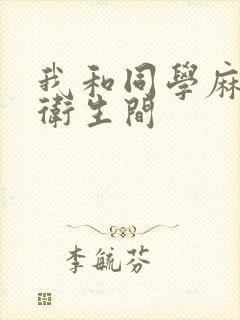 我和同學麻
衛生間
李毓芬